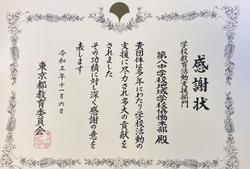 感謝状
学校教育活動支援部門
第八中学校地域学校協働本部 殿
貴団体は多年にわたり学校活動の
支援に尽力され多大の貢献を
されました
その功績に対し深く感謝の意を
表します
令和五年十一月六日
東京都教育委員会